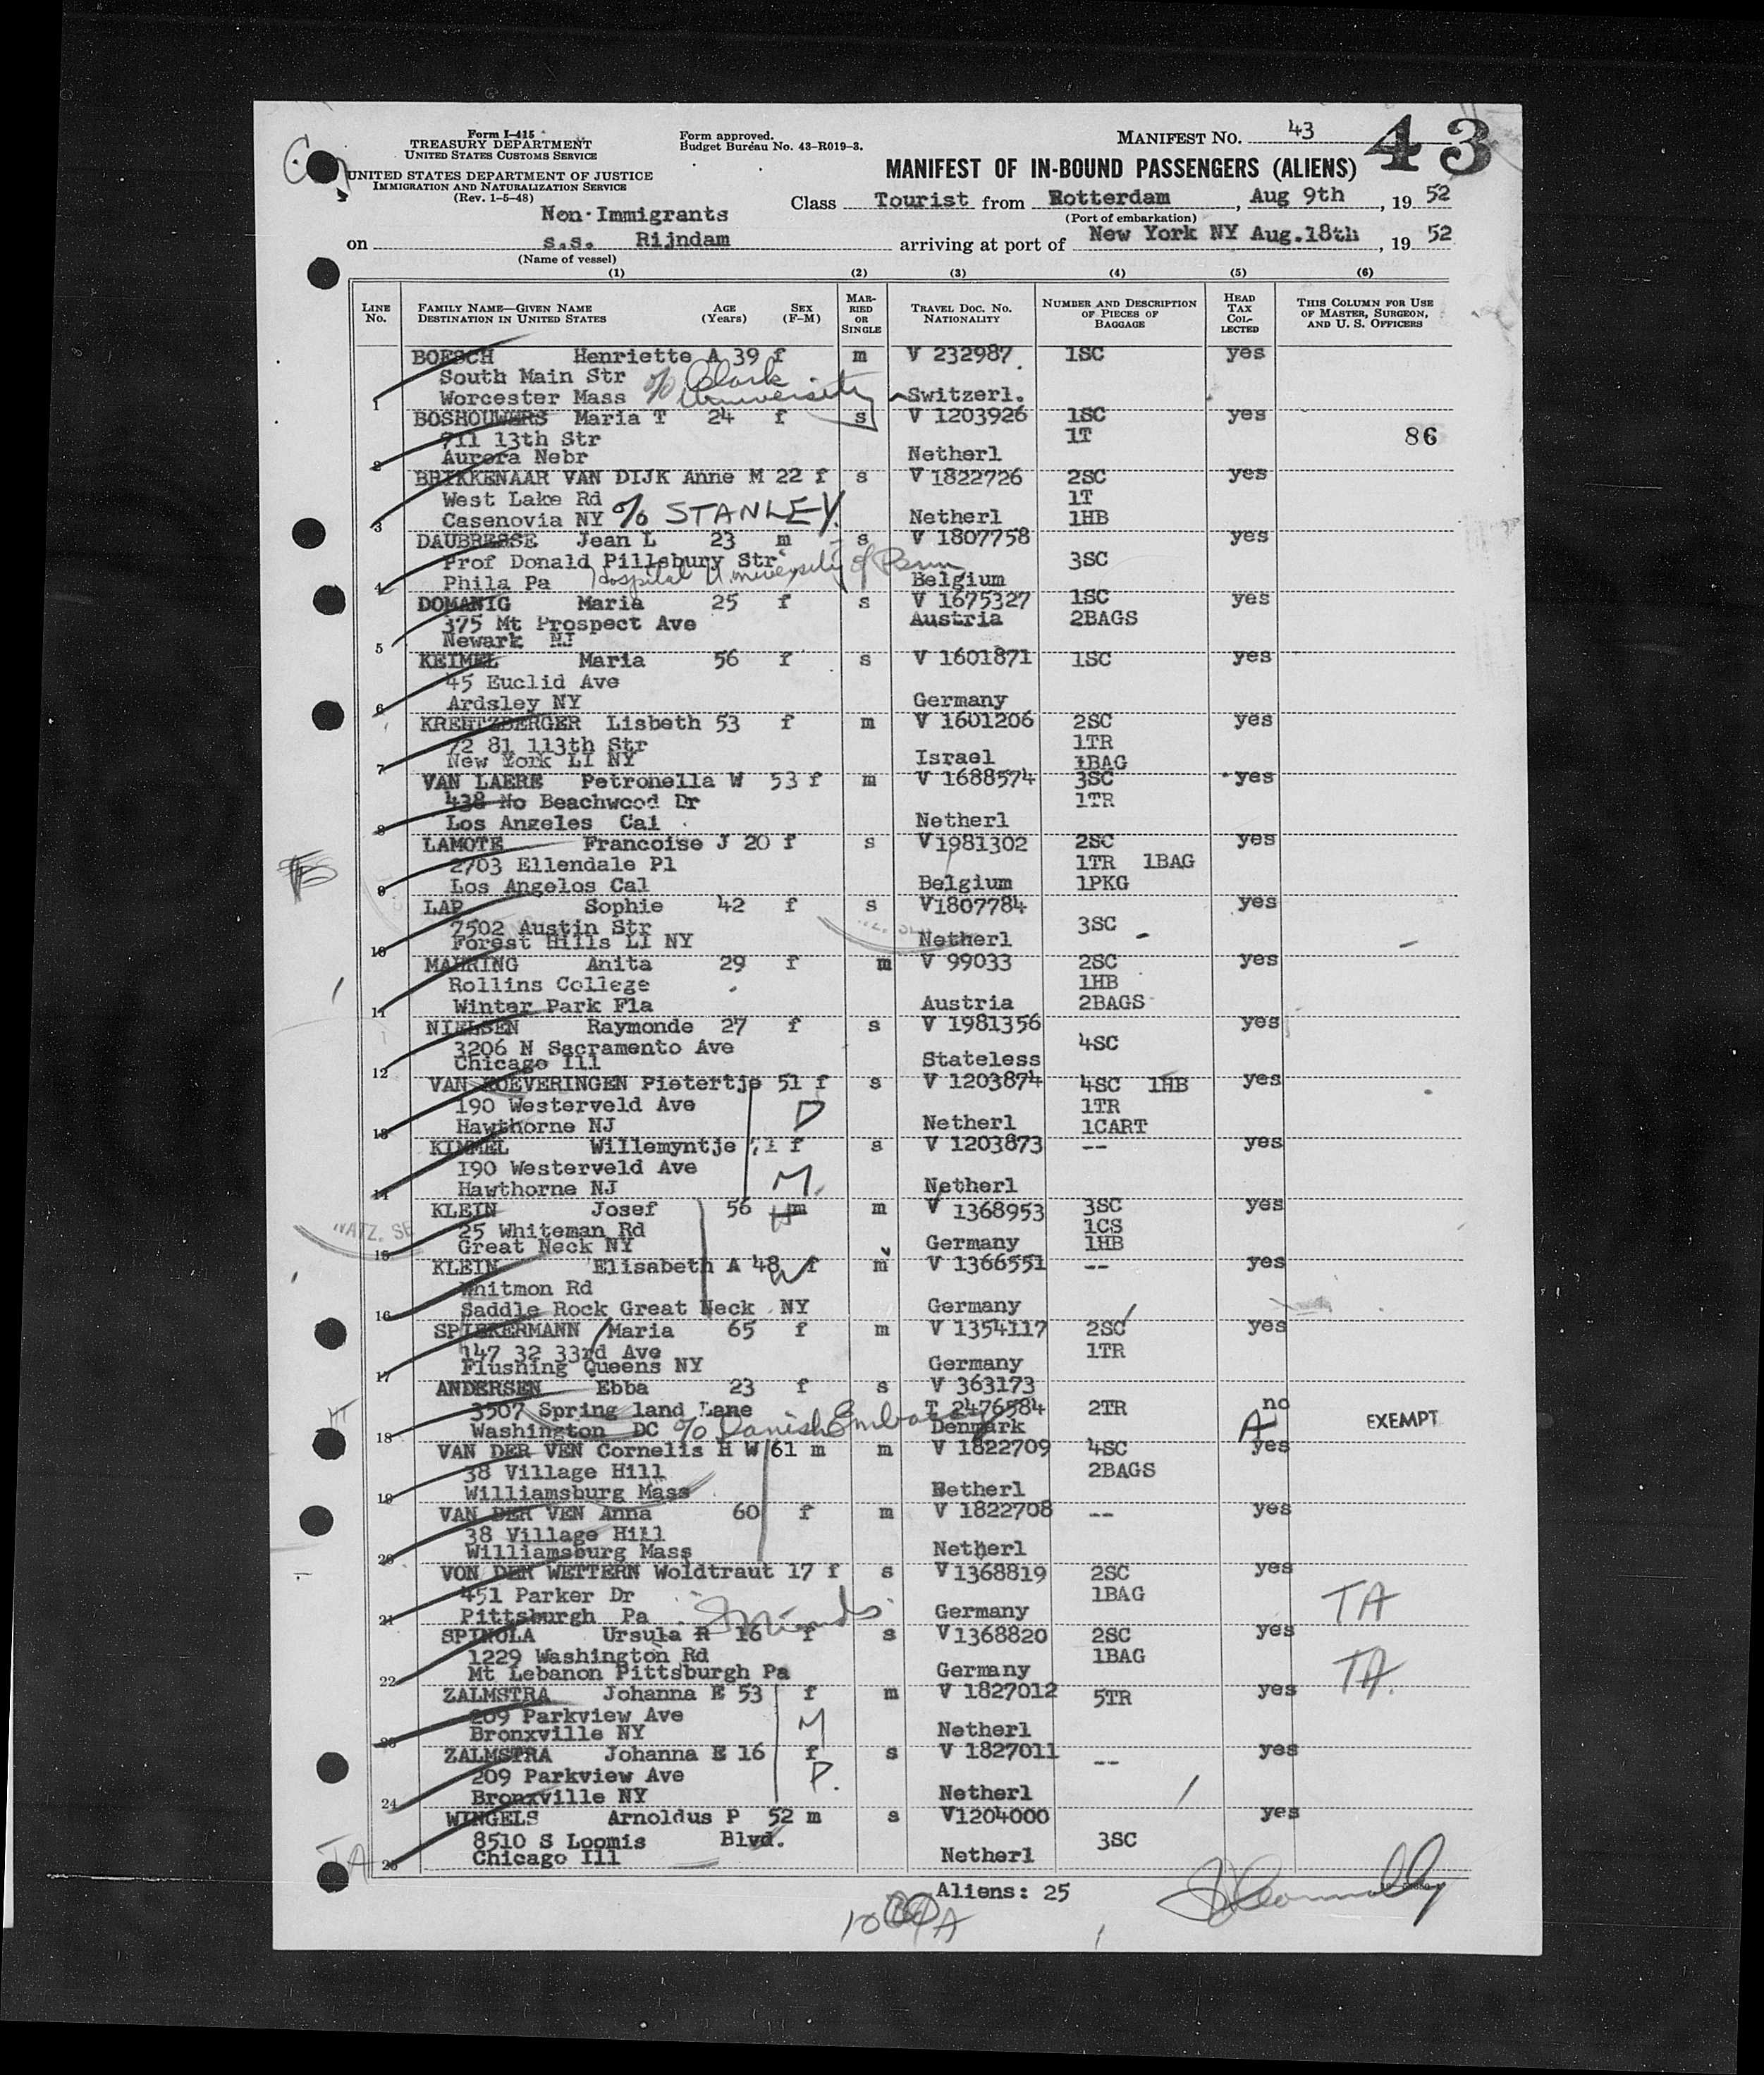 Form I-415
TREASURY DEPARTMENT
UNITED STATES CUSTOMS SERVICE
UNITED STATES DEPARTMENT OF JUSTICE
IMMIGRATION AND NATURALIZATION SERVICE
(Rev. 1-5-48)
Form approved.
Budget Bureau No. 43-R019-3.
MANIFEST No. 43
43
MANIFEST OF IN-BOUND PASSENGERS (ALIENS)
Non-Immigrants
Class Tourist from Rotterdam, Aug 9th, 1952
(Port of embarkation)
on s.s. Rijndam arriving at port of New York NY Aug.18th, 1952
(Name of vessel)
(1) (2) (3) (4) (5) (6)
LINE No.
FAMILY NAME—GIVEN NAME AGE (Years) SEX (F-M)
DESTINATION IN UNITED STATES
MARRIED OR SINGLE
TRAVEL DOC. NO. NATIONALITY
NUMBER AND DESCRIPTION OF PIECES OF BAGGAGE
HEAD TAX COLLECTED
THIS COLUMN FOR USE OF MASTER, SURGEON, AND U. S. OFFICERS
BOESCH Henriette A 39 f m V 232987 1SC yes
South Main Str c/o Clark
1 Worcester Mass University Switzerl.
BOSHOUWERS Maria T 24 f s V 1203926 1SC yes
711 13th Str 1T 86
2 Aurora Nebr Netherl
BRIKKENAAR VAN DIJK Anne M 22 f s V 1822726 2SC yes
West Lake Rd 1T
3 Casenovia NY c/o STANLEY. Netherl 1HB
DAUBRESSE Jean L 23 m s V 1807758 yes
Prof Donald Pillsbury Str 3SC
4 Phila Pa Hospital University of Penn Belgium
DOMANIG Maria 25 f s V 1675327 1SC yes
375 Mt Prospect Ave Austria 2BAGS
5 Newark NJ
KEIMEL Maria 56 f s V 1601871 1SC yes
45 Euclid Ave
6 Ardsley NY Germany
KREUTZBERGER Lisbeth 53 f m V 1601206 2SC yes
72 81 113th Str 1TR
7 New York LI NY Israel 1BAG
VAN LAERE Petronella W 53 f m V 1688574 3SC yes
438 No Beachwood Dr 1TR
8 Los Angeles Cal Netherl
LAMOTE Francoise J 20 f s V1981302 2SC yes
2703 Ellendale Pl 1TR 1BAG
9 Los Angelos Cal Belgium 1PKG
LAP Sophie 42 f s V1807784 yes
7502 Austin Str 3SC
10 Forest Hills LI NY Netherl
MAHRING Anita 29 f m V 99033 2SC yes
Rollins College 1HB
11 Winter Park Fla Austria 2BAGS
NIELSEN Raymonde 27 f s V 1981356 yes
3206 N Sacramento Ave 4SC
12 Chicago Ill Stateless
VAN ROEVERINGEN Pietertje 51 f s V 1203874 4SC 1HB yes
190 Westerveld Ave D 1TR
13 Hawthorne NJ Netherl 1CART
KIMMEL Willemyntje 71 f s V 1203873 -- yes
190 Westerveld Ave M.
14 Hawthorne NJ Netherl
KLEIN Josef 56 m m V 1368953 3SC yes
25 Whiteman Rd 1CS
15 Great Neck NY Germany 1HB
NATZ. SE
KLEIN Elisabeth A 48 W f m V 1366551 -- yes
Whitmon Rd
16 Saddle Rock Great Neck NY Germany
SPIEKERMANN Maria 65 f m V 1354117 2SC yes
147 32 33rd Ave 1TR
17 Flushing Queens NY Germany
ANDERSEN Ebba 23 f s V 363173
3507 Spring land Lane T 2476584 2TR no EXEMPT
18 Washington DC c/o Danish Embassy Denmark A
VAN DER VEN Cornelis H W 61 m m V 1822709 4SC yes
38 Village Hill 2BAGS
19 Williamsburg Mass Netherl
VAN DER VEN Anna 60 f m V 1822708 -- yes
38 Village Hill
20 Williamsburg Mass Netherl
VON DER WETTERN Woldtraut 17 f s V1368819 2SC yes
451 Parker Dr 1BAG TA
21 Pittsburgh Pa Friends Germany
SPINOLA Ursula R 16 f s V1368820 2SC yes
1229 Washington Rd 1BAG TA.
22 Mt Lebanon Pittsburgh Pa Germany
ZALMSTRA Johanna E 53 f m V 1827012 5TR yes
209 Parkview Ave M
23 Bronxville NY Netherl
ZALMSTRA Johanna E 16 f s V 1827011 -- yes
209 Parkview Ave D.
24 Bronxville NY Netherl
WINGELS Arnoldus P 52 m s V1204000 yes
8510 S Loomis Blvd. 3SC
25 Chicago Ill Netherl
TA
Aliens: 25